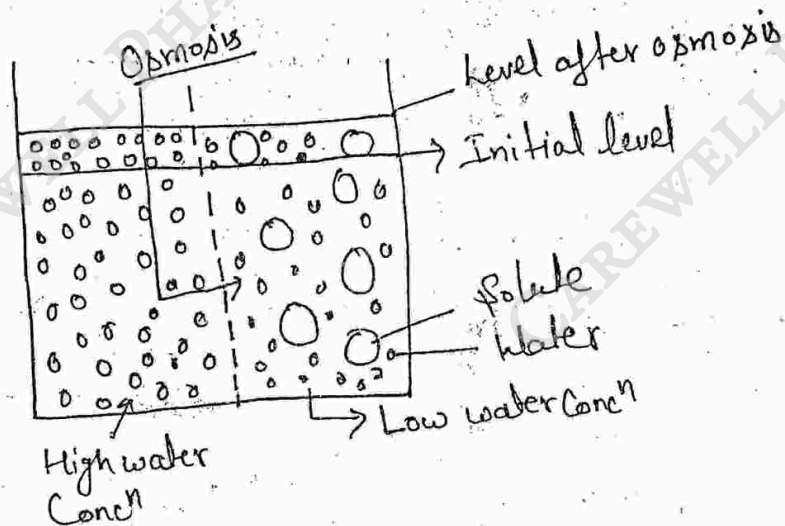 Osmosis
Level after osmosis
Initial level
Solute
Water
Low water Concⁿ
High water
Concⁿ
CAREWELL